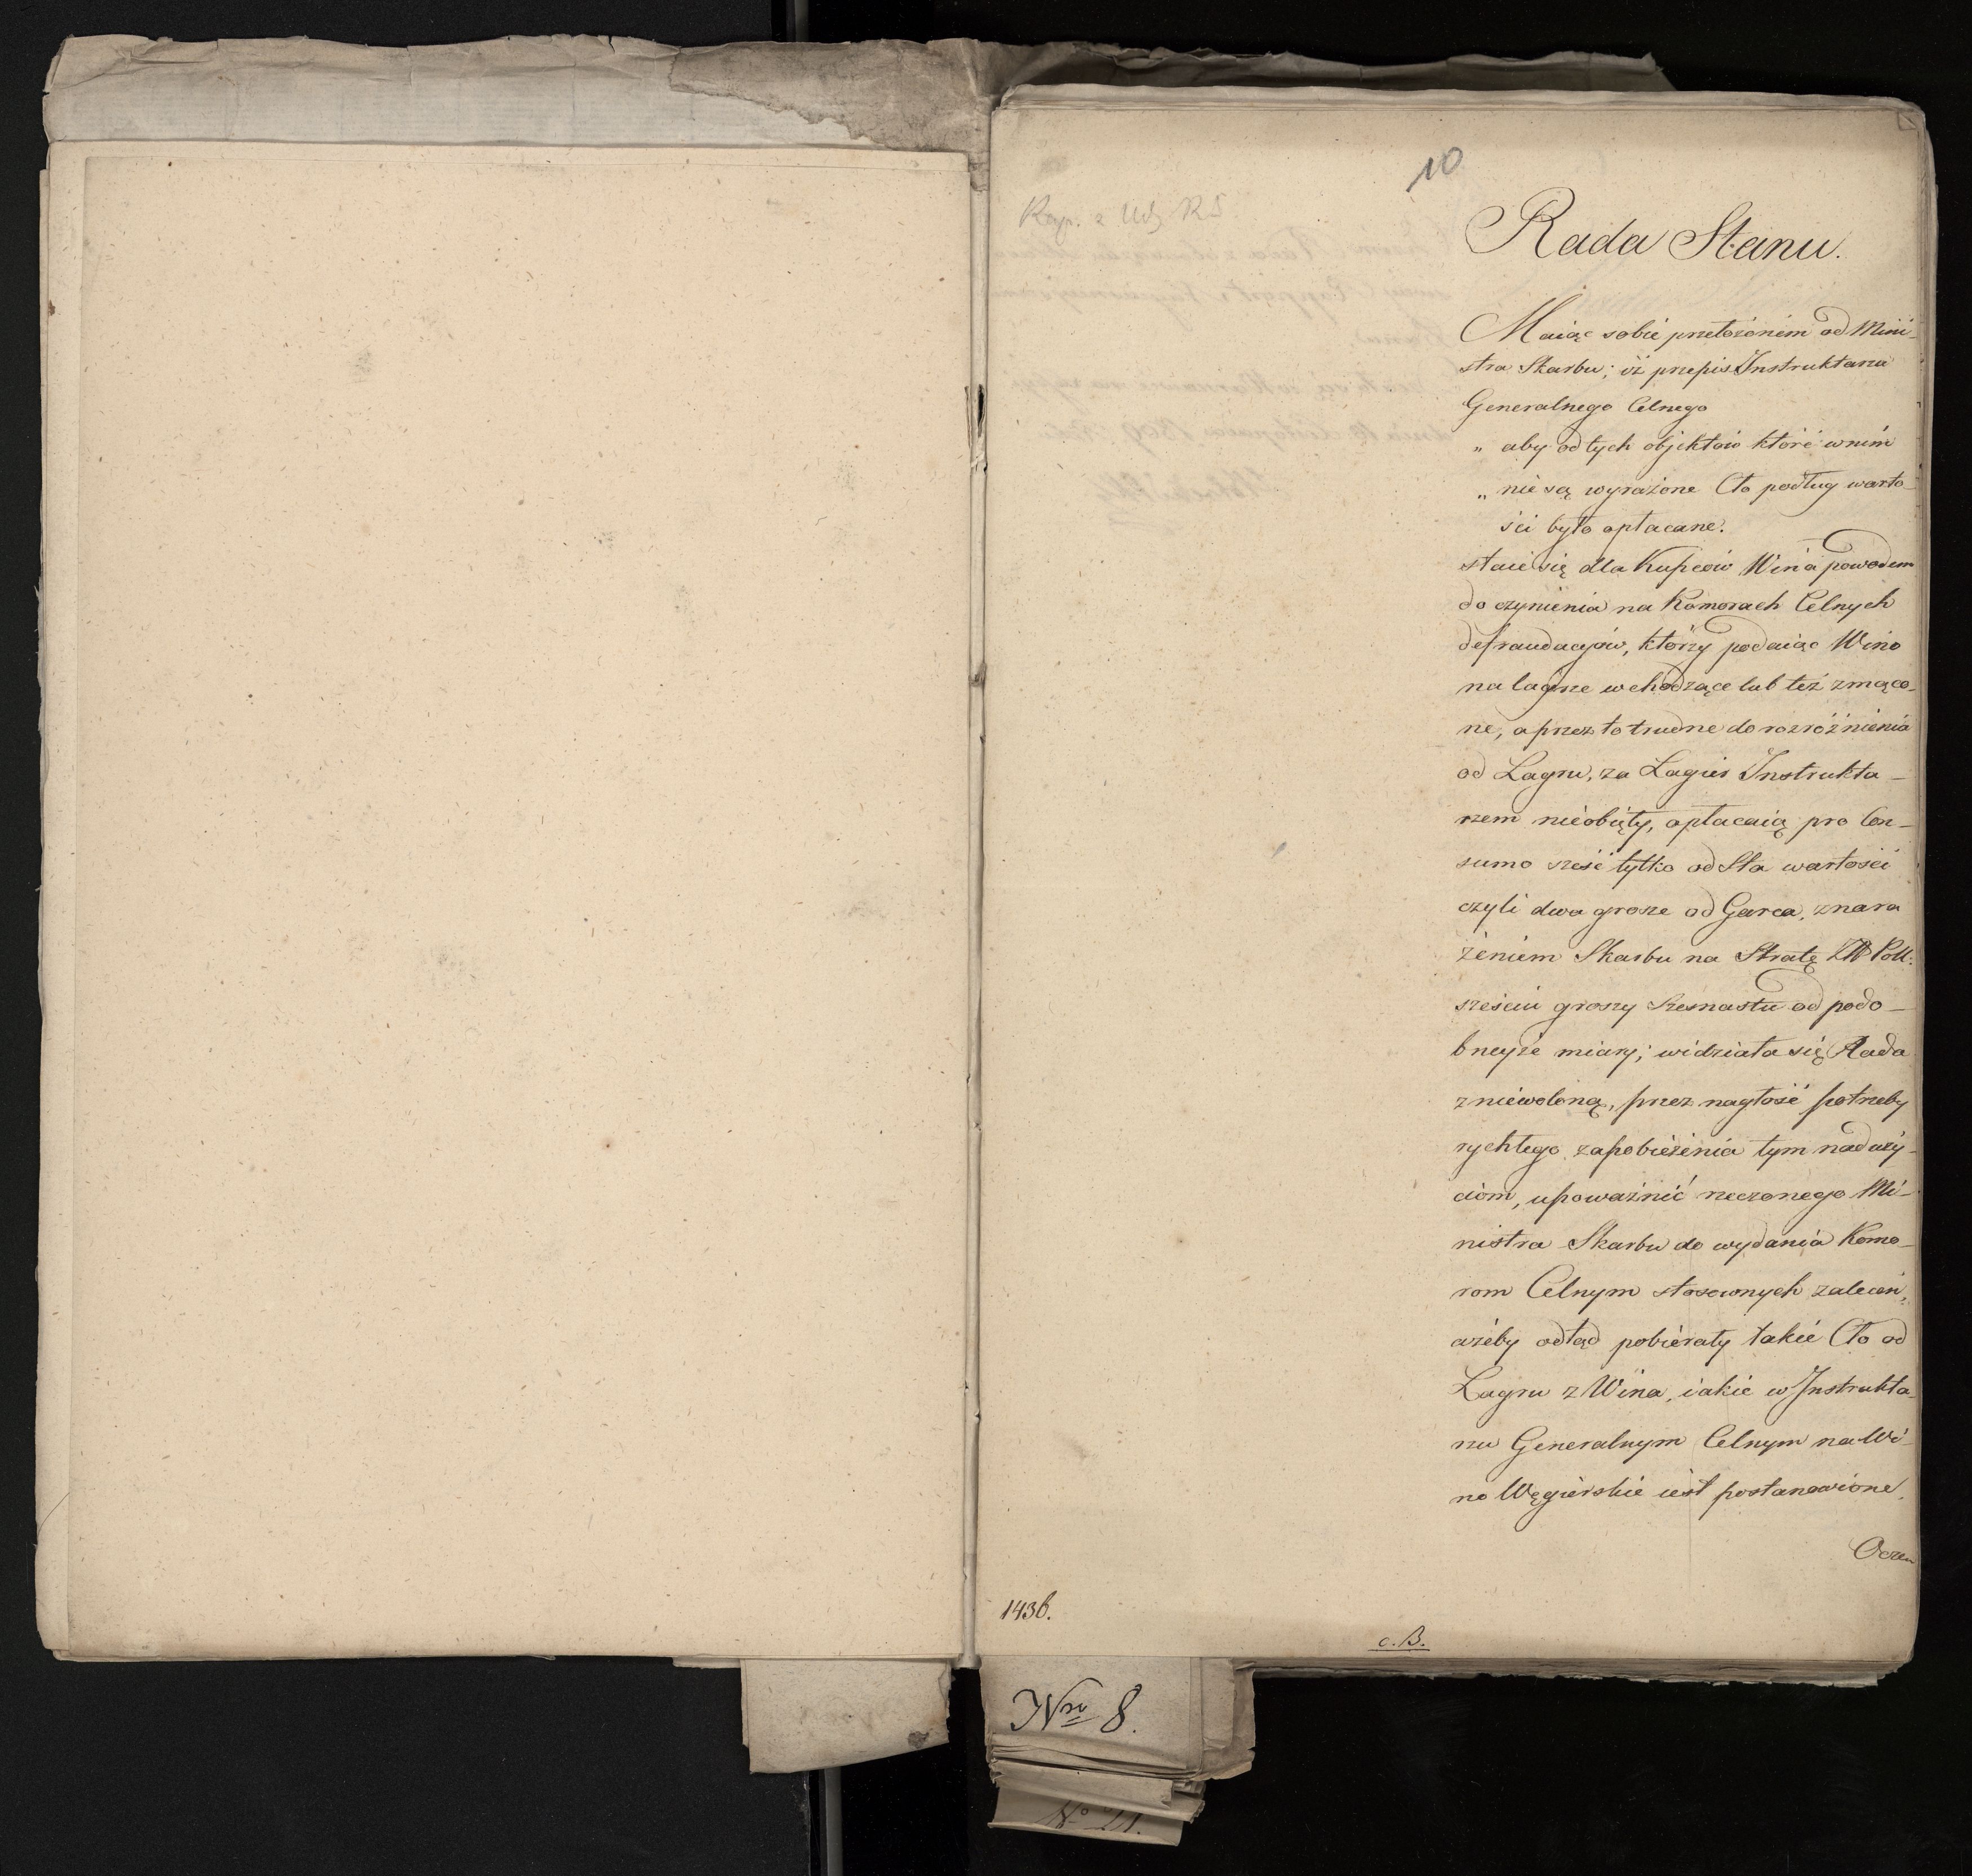 10
Rada Stanu.
Maiąc sobie przełożonem od Mini-
stra Skarbu; iż przepis Instruktarza
Generalnego Celnego
„ aby od tych objektow które w nim
„ nie są wyrażone Cło podług warto-
ści było opłacane.
staie się dla Kupców Wina powodem
do czynienia na Komorach Celnych
defraudacyów, którzy podaiąc Wino
na lagrze wchodzące lub też zmąco-
ne, a przez to trudne do rozróżnienia
od Lagru, za Lagier Instrukta-
rzem nieobięty, opłacaią pro Con-
sumo sześć tylko od Sta wartości
czyli dwa grosze od Garca, z nara
żeniem Skarbu na Stratę Poll.
sześciu groszy Szesnastu od podo-
bneyże miary; widziała się Rada
zniewoloną, przez nagłość potrzeby
rychłego zapobieżenia tym naduży-
ciom, upoważnić rzeczonego Mi-
nistra Skarbu do wydania Komo-
rom Celnym stosownych zaleceń,
ażeby odtąd pobierały takie Cło od
Lagru z Wina, iakie w Instrukta-
rzu Generalnym Celnym na Wi-
no Węgierskie iest postanowione.
Oczem
1436.
c.B.
Nro 8.
No 21.